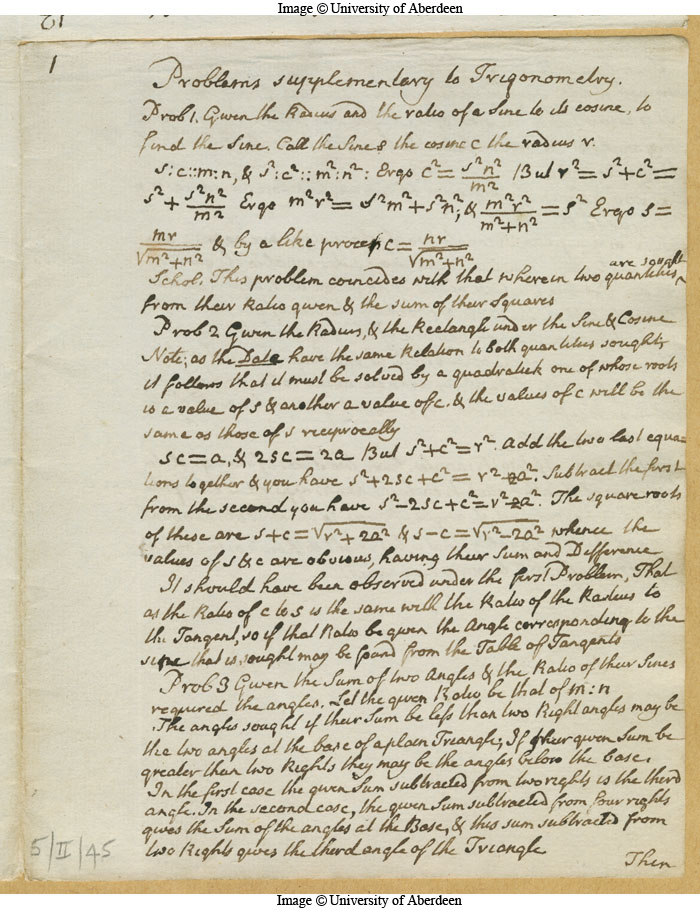 Image © University of Aberdeen
21
1
Problems supplementary to Trigonometry.
Prob 1. Given the Radius and the ratio of a Sine to its cosine, to
find the Sine. Call the Sine s the cosine c the radius r.
s:c::m:n, & s²:c²::m²:n²: Ergo c² = s²n²/m² But r² = s²+c² =
s² + s²n²/m² Ergo m²r² = s²m²+s²n²; & m²r²/m²+n² = s² Ergo s =
mr/√m²+n² & by a like process c = nr/√m²+n²
Schol. This problem coincides with that wherein two quantities are sought
from their Ratio given & the sum of their Squares
Prob 2 Given the Radius, & the Rectangle under the Sine & Cosine
Note; as the Data have the same Relation to both quantities sought
it follows that it must be solved by a quadratick one of whose roots
is a value of s & another a value of c. & the values of c will be the
same as those of s reciprocally
sc = a, & 2sc = 2a But s²+c² = r². Add the two last equa
tions together & you have s²+2sc+c² = r²-2a². Subtract the first
from the second you have s²-2sc+c² = r²-2a². The square roots
of these are s+c = √r²+2a² & s-c = √r²-2a² whence the
values of s & c are obvious, having their Sum and Difference
It should have been observed under the first Problem, That
as the Ratio of c to s is the same with the Ratio of the Radius to
the Tangent, so if that Ratio be given the Angle corresponding to the
sine that is sought may be found from the Table of Tangents
Prob 3 Given the Sum of two Angles & the Ratio of their Sines
required the angles. Let the given Ratio be that of m:n
The angles sought if their Sum be less than two Right angles may be
the two angles at the base of a plain Triangle; If their given Sum be
greater than two Rights they may be the angles below the base.
In the first case the given Sum subtracted from two rights is the third
angle. In the second case, the given Sum subtracted from four rights
gives the Sum of the angles at the Base, & this sum subtracted from
two Rights gives the third angle of the Triangle
Then
5/II/45
Image © University of Aberdeen